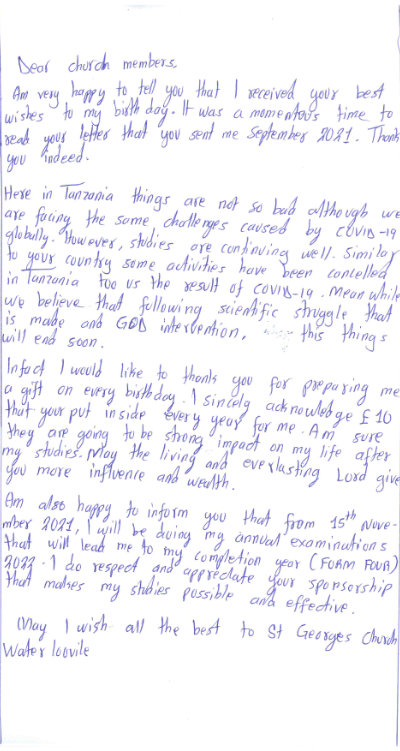 Dear church members,
Am very happy to tell you that I received your best
wishes to my birth day. It was a momentous time to
read your letter that you sent me September 2021. Thank
you indeed.
Here in Tanzania things are not so bad although we
are facing the same challenges caused by COVID-19
globally. However, studies are continuing well. Similar
to your country some activities have been cancelled
in Tanzania too us the result of COVID-19. Mean while
we believe that following scientific struggle that
is made and GOD intervention, this things
will end soon.
Infact I would like to thank you for preparing me
a gift on every birthday. I sincely acknowledge £10
that your put inside every year for me. Am sure
they are going to be strong impact on my life after
my studies. May the living and everlasting Lord give
you more influence and wealth.
Am also happy to inform you that from 15th Nove-
mber 2021, I will be doing my annual examinations
that will lead me to my completion year (FORM FOUR)
2022. I do respect and appreciate your sponsorship
that makes my studies possible and effective.
May I wish all the best to St Georges Church
Water loovile